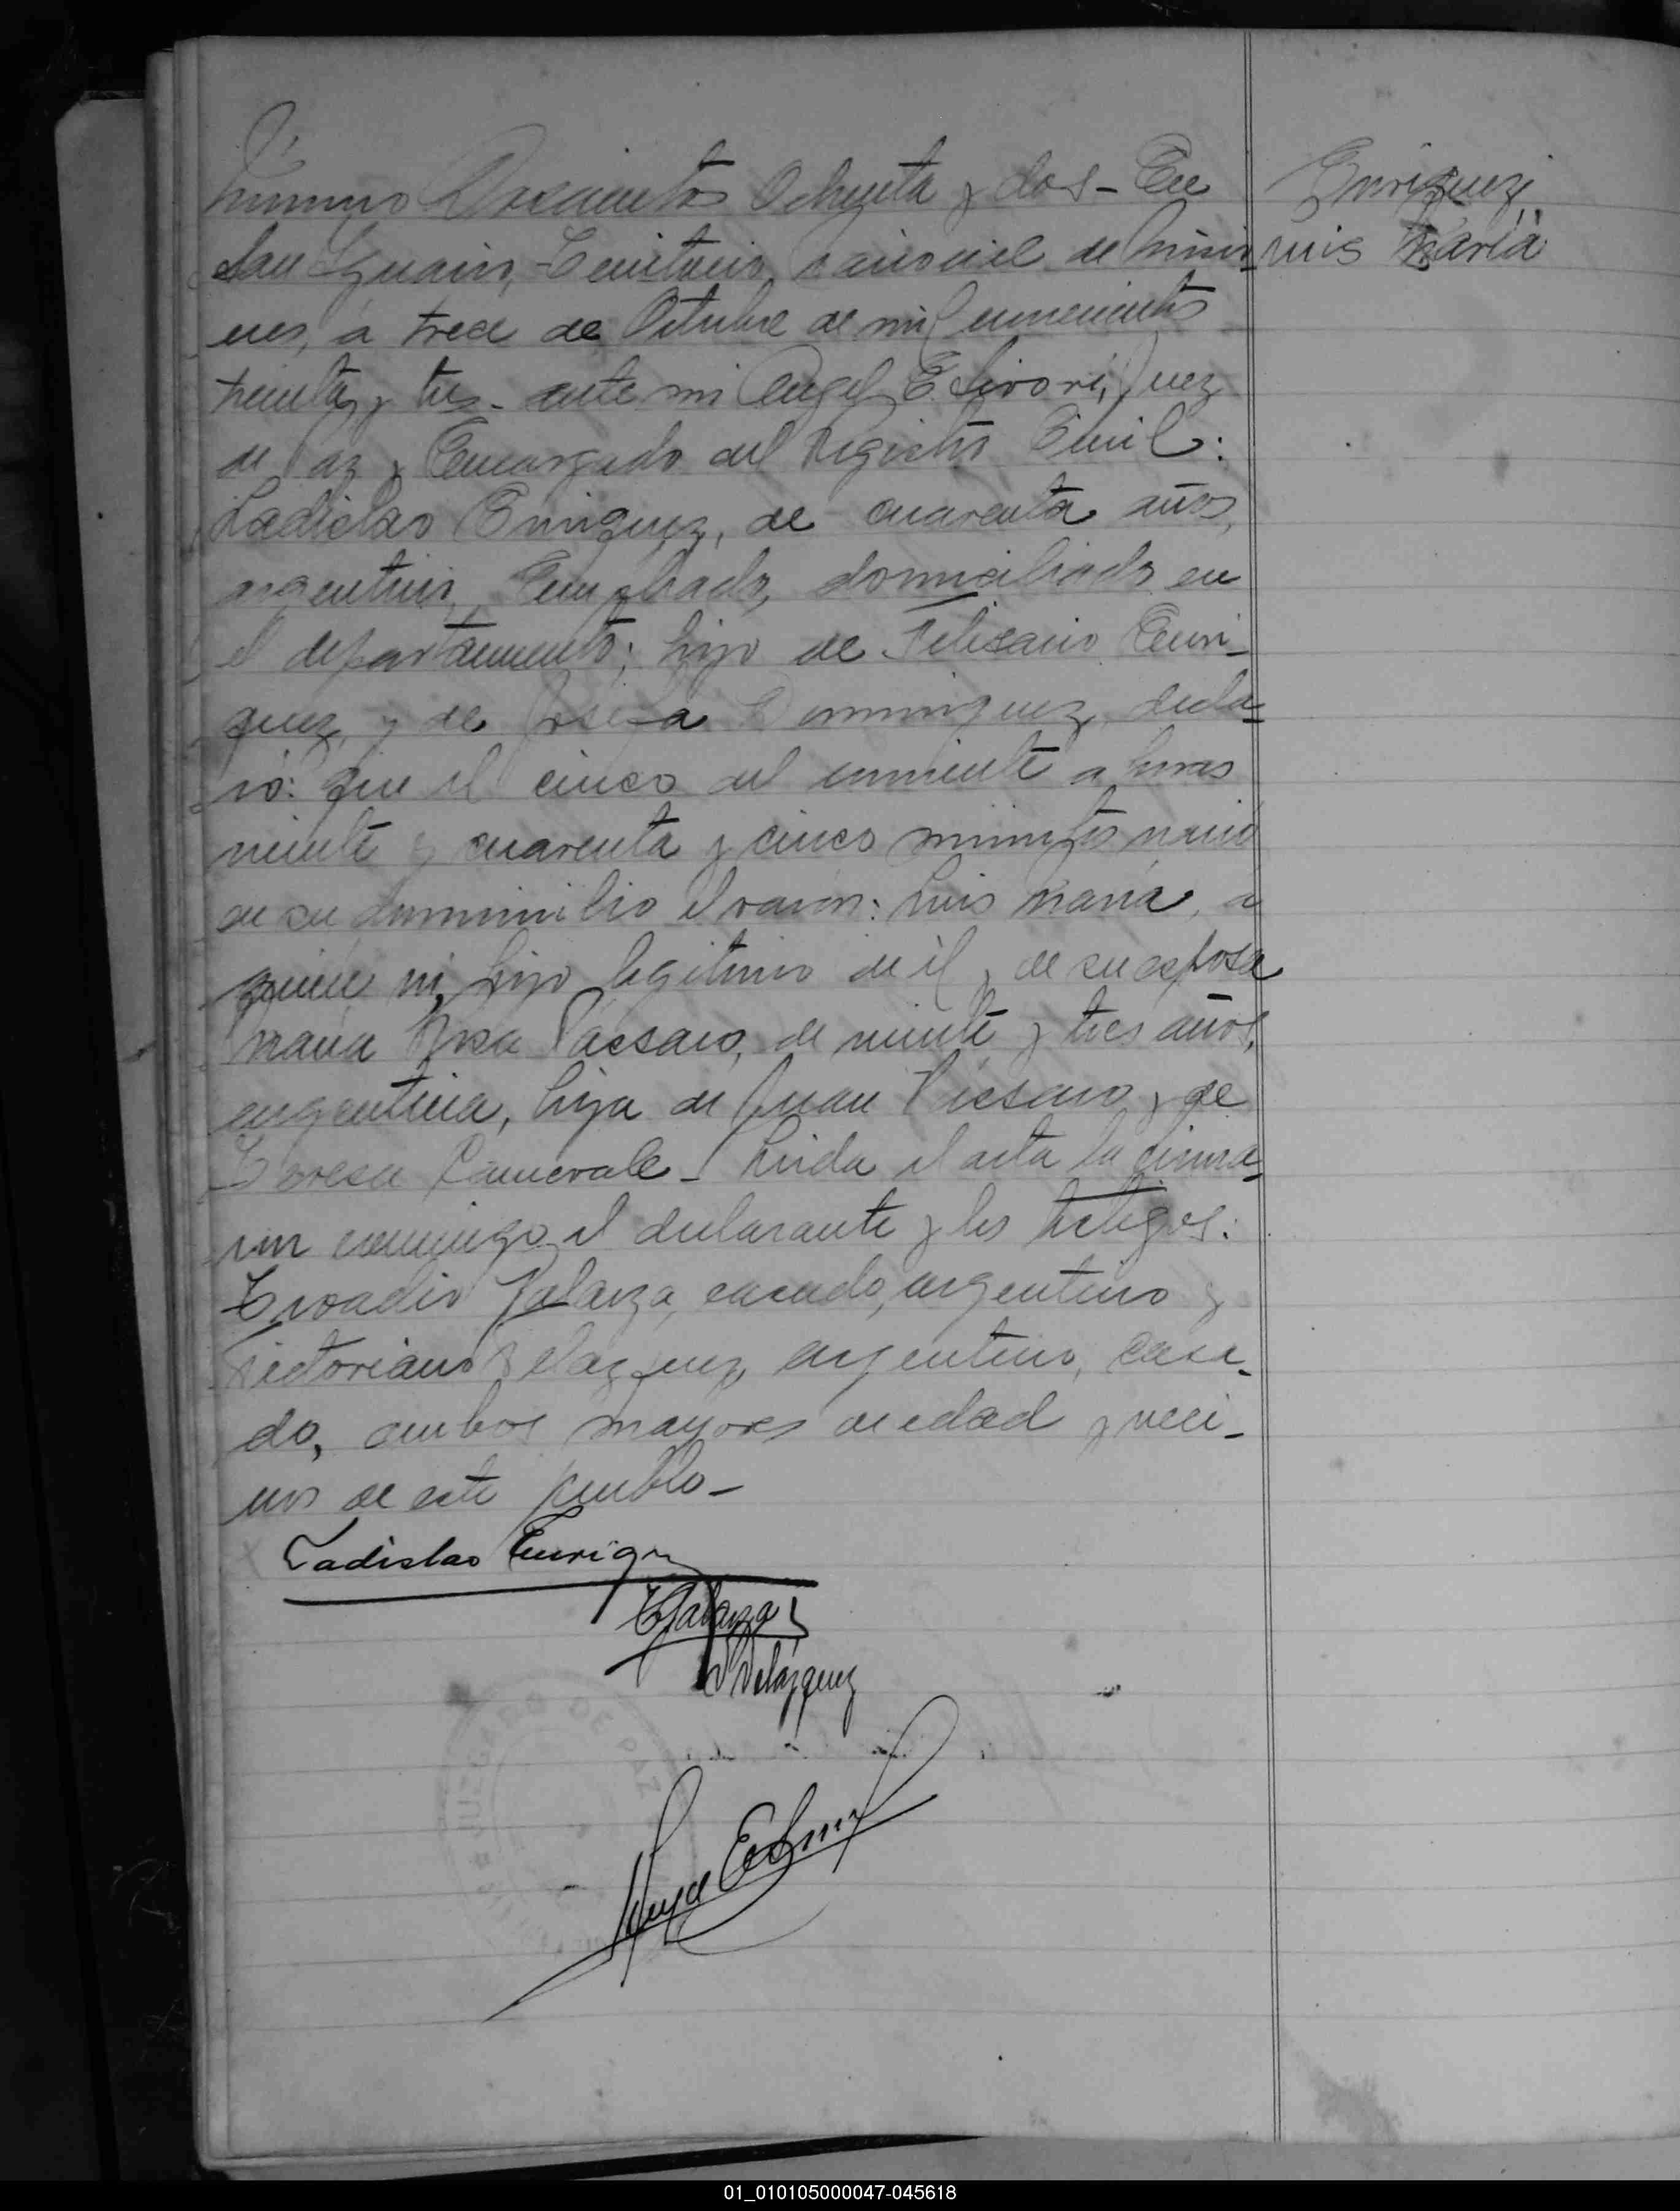 Número Doscientos Ochenta y dos - En
San Ignacio, Territorio nacional de Misio-
nes, a trece de Octubre de mil novecientos
treinta y tres - ante mi Angel E. Sivori, Juez
de Paz y Encargado del Registro Civil:
Ladislao Enriquez, de cuarenta años,
argentino, Empleado, domiciliado en
el departamento; hijo de Enri-
quez, y de Josefa Dominguez, decla-
ró: que el cinco del corriente a horas
veinte y cuarenta y cinco minutos nació
en su domicilio el varón: Luis María, a
quien vi, hijo legitimo de él y de su esposa
María Rosa Passaro, de veinte y tres años,
argentina, hija de Juan Passaro y de
Teresa Carnevale - Leida el acta la firma-
ron conmigo el declarante y los testigos:
Eroadio Galarza, casado, argentino y
Victoriano Velazquez, argentino, casa-
do, ambos mayores de edad y veci-
nos de este pueblo -
Enriquez
Luis María
Ladislao Enriquez
E Galarza
V Velázquez
JUZGADO DE PAZ
Angel E Sivori
01_010105000047-045618